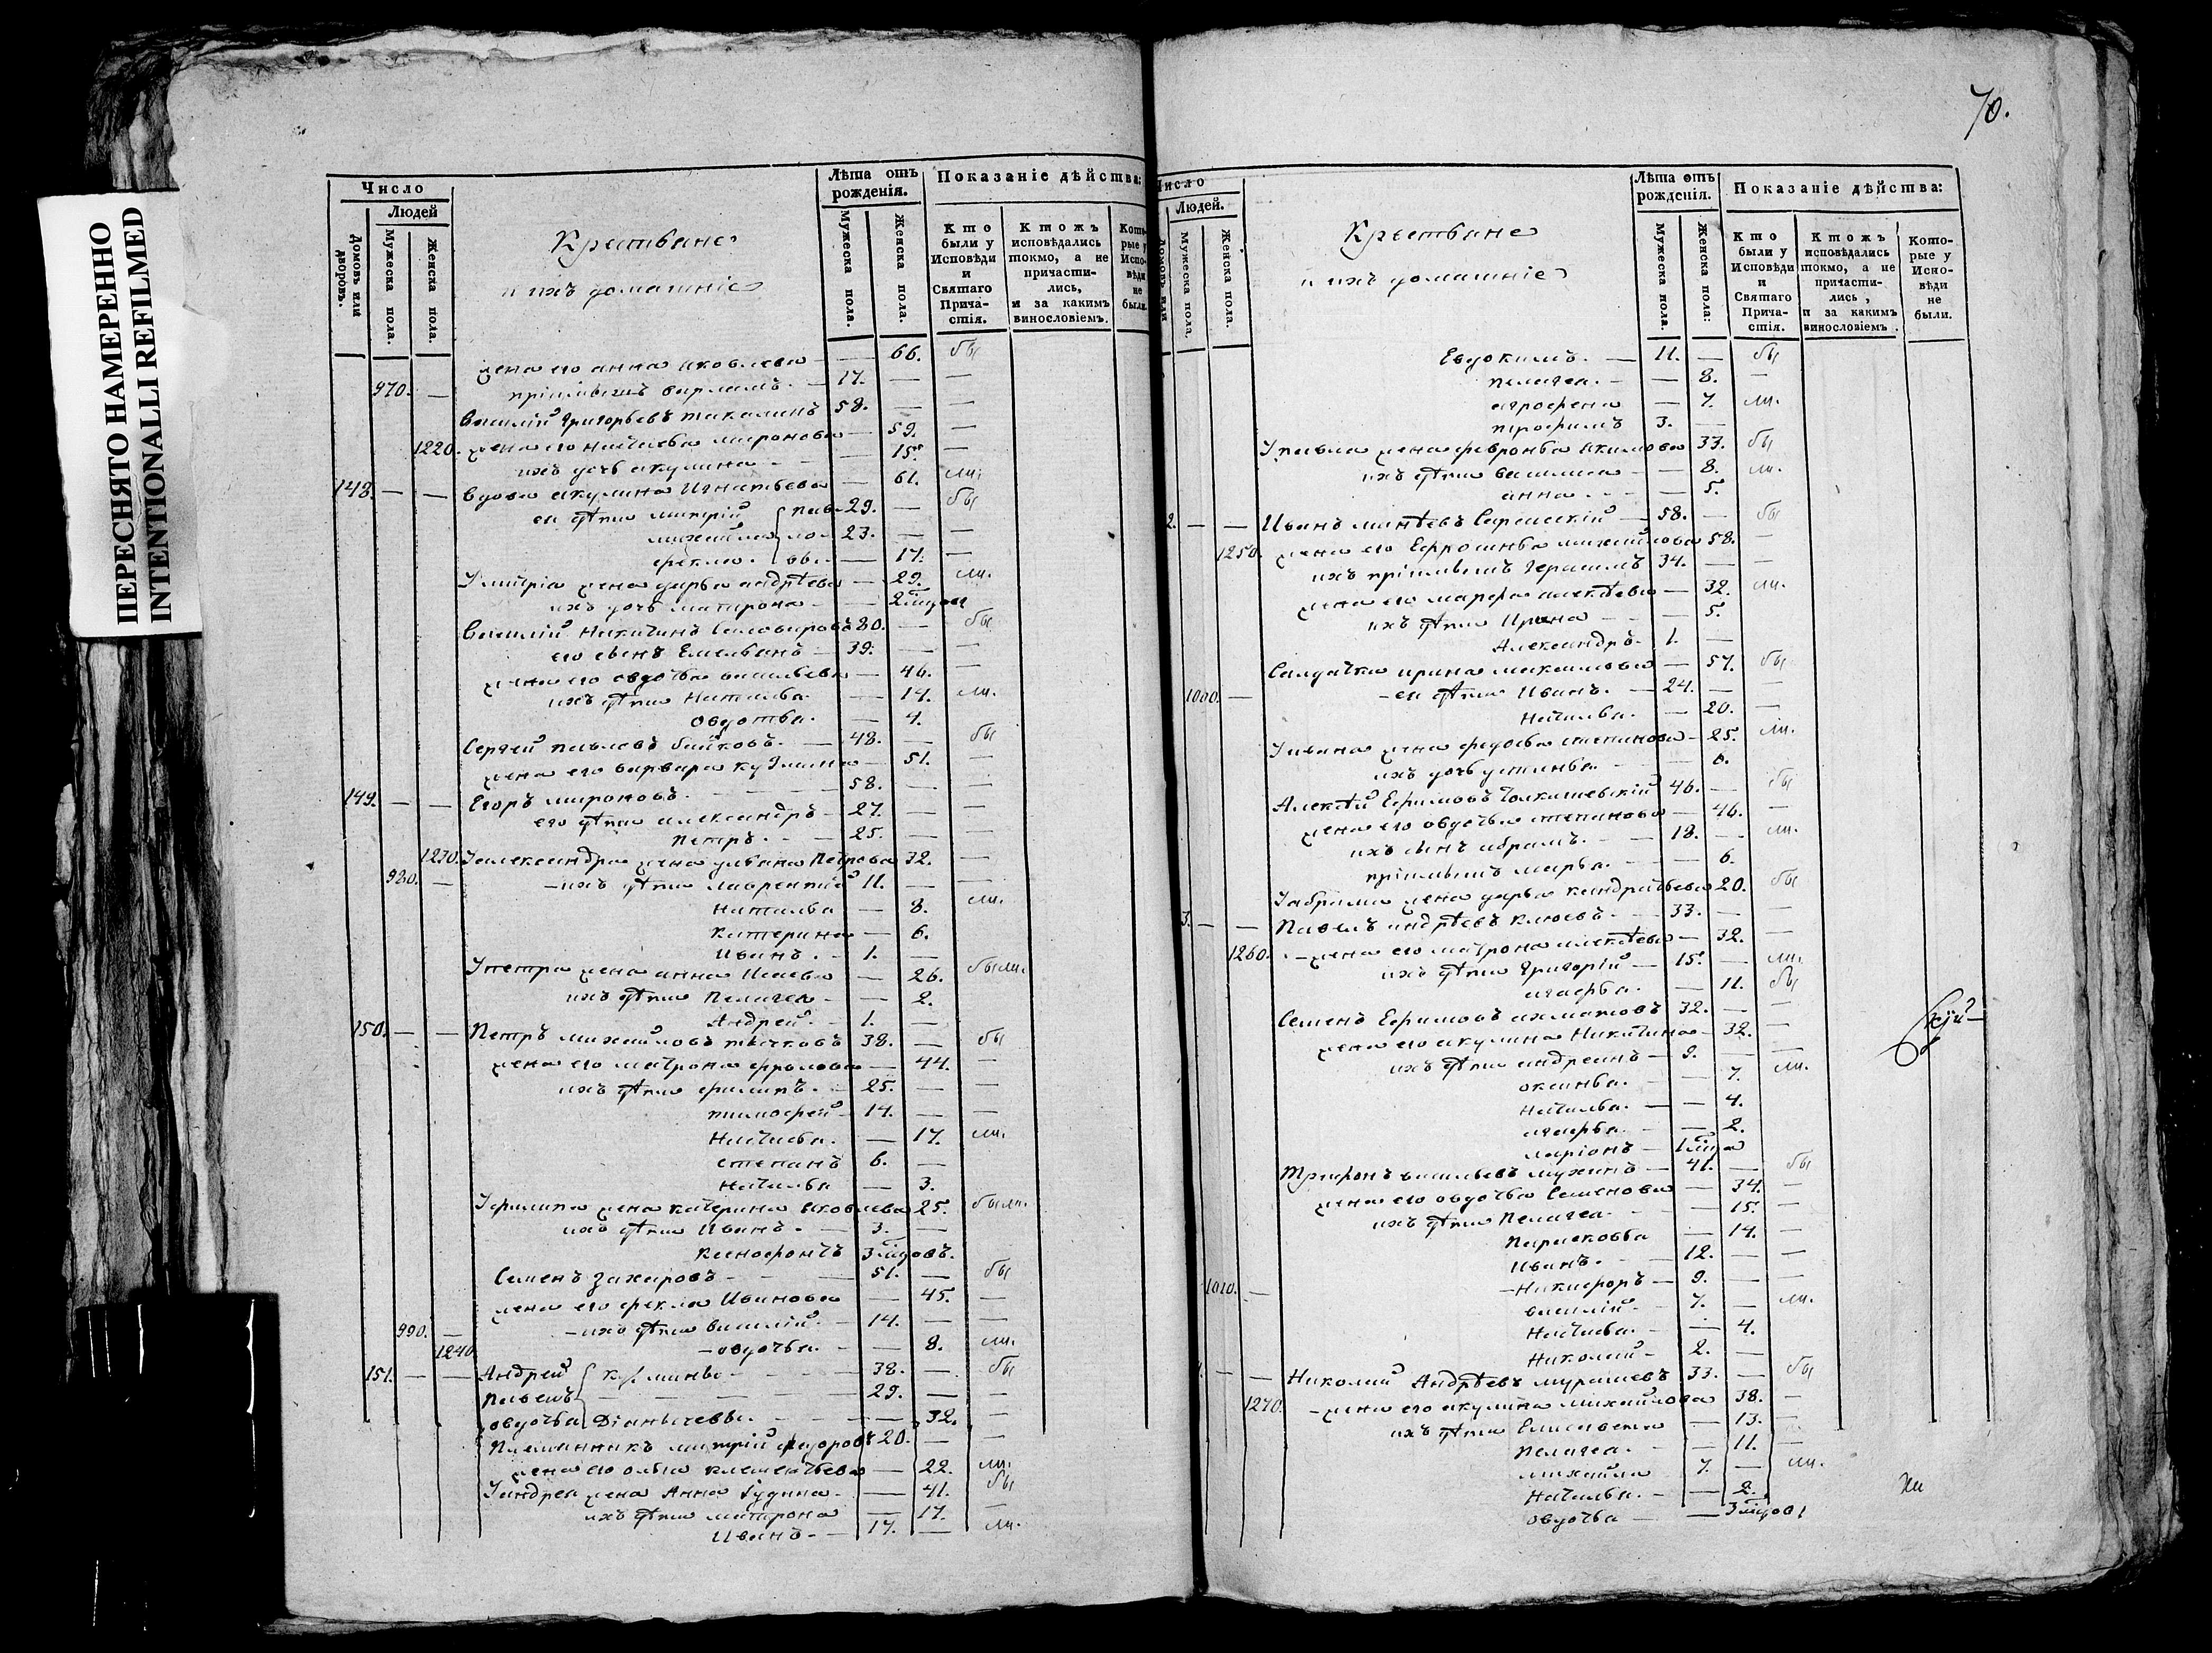 ПЕРЕСНЯТО НАМЕРЕННО
INTENTIONALLI REFILMED
Число
Людей
Домовъ или дворовъ.
Мужеска пола.
Женска пола.
Крестьяне
и ихъ домашніе
Лѣта отъ рожденія.
Мужеска пола.
Женска пола.
Показаніе дѣйства:
Кто были у Исповѣди и Святаго Прича-стія.
Ктожъ исповѣдались токмо, а не причасти-лись, и за какимъ винословіемъ.
жена его анна яковлева — 66. бы
970. — пріимышъ варламъ. 17. — —
василій григорьевъ 58. — —
1220. жена его наталья миронова — 59. —
ихъ дочь акулина — 15. —
148. — — вдова акулина Игнатьева — 61. ли:
ея дѣти митрій пав 29. — бы
михайла ло 23. — —
фекла. вы — 17. —
У митрія жена дарья андрѣева — 29. ли.
ихъ дочь матрона — 2
василій Никитинъ 80. — бы
его сынъ Емельянъ 39. — —
жена его авдотья васильева — 46. —
ихъ дѣти Наталья — 14. ли.
овдотья. — 4.
Сергей павловъ байковъ. 48. — бы
жена его варвара кузмина — 51. —
149. — — Егоръ мироновъ. 58. — —
его дѣти александръ 27. — —
петръ. 25. — —
1230. У александра жена ульяна Петрова 32. —
980. — ихъ дѣти лаврентій 11. — —
Наталья — 8. ли.
катерина — 6.
Иванъ. 1. —
У петра жена анна Исаева — 26. были.
ихъ дѣти Пелагея — 2.
Андрей. 1. —
150. — — Петръ михайловъ тычковъ 38. — бы
жена его матрона фролова — 44. —
ихъ дѣти филипъ. 25. — —
тимофей 14. — —
Наталья. — 17. ли.
степанъ 6. —
Наталья — 3.
У филипа жена катерина яковлева 25. были.
ихъ дѣти Иванъ. 3. —
ксенофонтъ 3
Семенъ захаровъ 51. — бы
жена его фекла Иванова — 45. —
990. — ихъ дѣти василій. 14. — —
1240 овдотья. — 8. ли.
151. — — Андрей кузмины 38. — бы
Павелъ 29. — —
овдотья — 32. —
Племянникъ митрій федоровъ 20. — —
жена его олена — 22. ли.
У андрея жена Анна Іудина — 41. бы
ихъ дѣти матрона — 17. —
Иванъ 17. — ли.
70.
Число
Людей.
Мужеска пола.
Женска пола.
Крестьяне
и ихъ домашніе
Лѣта отъ рожденія.
Мужеска пола.
Женска пола:
Показаніе дѣйства:
Кто были у Исповѣди и Святаго Прича-стія.
Ктожъ исповѣдались токмо, а не причасти-лись, и за какимъ винословіемъ.
Кото-рые у Испо-вѣди не были.
Евдокимъ. 11. — бы
пелагея. — 8. —
агрофена — 7. ли.
трофимъ 3. —
У павла жена февронья акимова 33. бы
ихъ дѣти василиса — 8. ли.
анна — 5.
2. — — Иванъ минѣевъ 58. — бы
1250. жена его Ефросинья михайлова 58. —
ихъ пріимышъ герасимъ 34. — —
жена его марфа алексѣева — 32. ли.
ихъ дѣти Ирина — 5.
Александръ 1. —
Салдатка ирина максимова — 57. бы
1000. — ея дѣти Иванъ. 24. — —
Наталья. — 20. —
У ивана жена федосья степанова 25. ли.
ихъ дочь устинья — 6.
Алексѣй Ефимовъ 46. — бы
жена его овдотья степанова — 46. —
ихъ сынъ абрамъ. 18. — ли.
пріимышъ марья. — 6.
У абрама жена дарья кандратьева 20. бы
3. — — Павелъ андрѣевъ клюевъ. 33. — —
1260. жена его матрона алексѣева — 32. —
ихъ дѣти григорій 15. — ли.
агафья. — 11. бы
Семенъ Ефимовъ 32. — —
жена его акулина Никитина 32. —
ихъ дѣти андреянъ 9. — —
оксинья. — 7. ли.
Наталья. — 4.
агафья. — 2.
ларіонъ 1
Трифонъ васильевъ мухинъ 41. — бы
жена его овдотья Семенова — 34. —
ихъ дѣти Пелагея — 15. —
Парасковья — 14. —
Иванъ. 12. — —
1010. — Никифоръ 9. — —
василій. 7. — ли.
Наталья. — 4.
Николай 2. —
— — Николай Андрѣевъ мурашевъ 33. — бы
1270. жена его акулина михайлова 38. —
ихъ дѣти Елисавета — 13. —
пелагея. — 11. —
михайла 7. — ли.
Наталья. — 2.
овдотья — 3